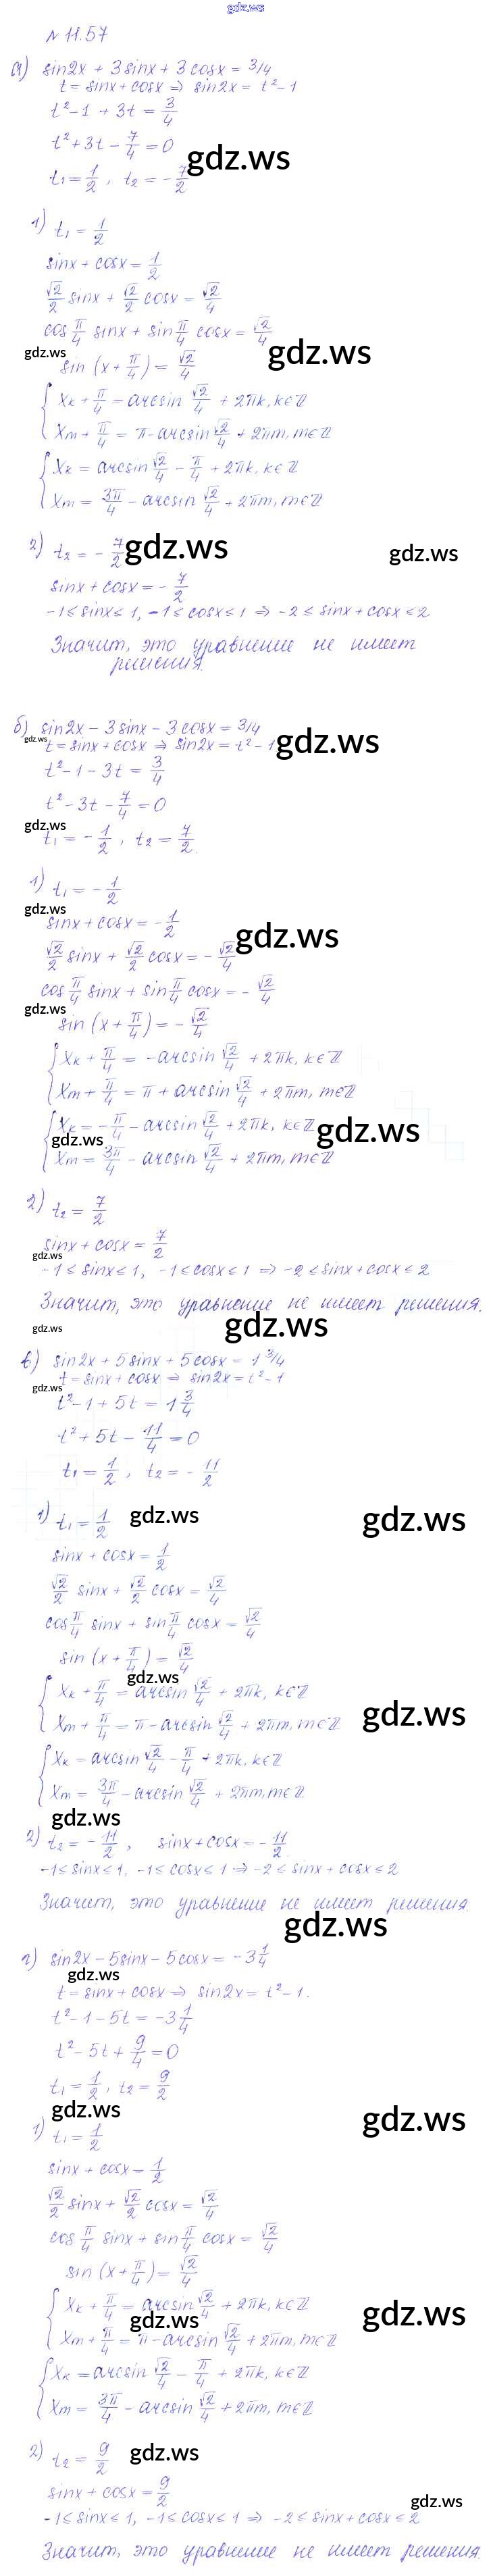 gdz.ws
№ 11.57
а) sin2x + 3sinx + 3cosx = 3/4
t = sinx + cosx ⇒ sin2x = t² - 1
t² - 1 + 3t = 3/4
t² + 3t - 7/4 = 0
gdz.ws
t₁ = 1/2, t₂ = - 7/2
1) t₁ = 1/2
sinx + cosx = 1/2
√2/2 sinx + √2/2 cosx = √2/4
cos π/4 sinx + sin π/4 cosx = √2/4
gdz.ws
gdz.ws
sin (x + π/4) = √2/4
{ xk + π/4 = arcsin √2/4 + 2πk, k∈ℤ
xm + π/4 = π - arcsin √2/4 + 2πm, m∈ℤ
{ xk = arcsin √2/4 - π/4 + 2πk, k∈ℤ
xm = 3π/4 - arcsin √2/4 + 2πm, m∈ℤ
2) t₂ = - 7/2
gdz.ws
gdz.ws
sinx + cosx = - 7/2
-1 ≤ sinx ≤ 1, -1 ≤ cosx ≤ 1 ⇒ -2 ≤ sinx + cosx ≤ 2
Значит, это уравнение не имеет
решения.
б) sin2x - 3sinx - 3cosx = 3/4
gdz.ws
t = sinx + cosx ⇒ sin2x = t² - 1
gdz.ws
t² - 1 - 3t = 3/4
t² - 3t - 7/4 = 0
gdz.ws
t₁ = - 1/2, t₂ = 7/2.
1) t₁ = - 1/2
gdz.ws
sinx + cosx = - 1/2
gdz.ws
√2/2 sinx + √2/2 cosx = - √2/4
cos π/4 sinx + sin π/4 cosx = - √2/4
gdz.ws
sin (x + π/4) = - √2/4
{ xk + π/4 = - arcsin √2/4 + 2πk, k∈ℤ
xm + π/4 = π + arcsin √2/4 + 2πm, m∈ℤ
{ xk = - π/4 - arcsin √2/4 + 2πk, k∈ℤ
gdz.ws
gdz.ws
xm = 3π/4 - arcsin √2/4 + 2πm, m∈ℤ
2) t₂ = 7/2
sinx + cosx = 7/2
gdz.ws
-1 ≤ sinx ≤ 1, -1 ≤ cosx ≤ 1 ⇒ -2 ≤ sinx + cosx ≤ 2
Значит, это уравнение не имеет решения.
gdz.ws
gdz.ws
в) sin2x + 5sinx + 5cosx = 1 3/4
t = sinx + cosx ⇒ sin2x = t² - 1
gdz.ws
t² - 1 + 5t = 1 3/4
t² + 5t - 11/4 = 0
t₁ = 1/2, t₂ = - 11/2
1) t₁ = 1/2
gdz.ws
gdz.ws
sinx + cosx = 1/2
√2/2 sinx + √2/2 cosx = √2/4
cos π/4 sinx + sin π/4 cosx = √2/4
sin (x + π/4) = √2/4
gdz.ws
{ xk + π/4 = arcsin √2/4 + 2πk, k∈ℤ
xm + π/4 = π - arcsin √2/4 + 2πm, m∈ℤ
gdz.ws
{ xk = arcsin √2/4 - π/4 + 2πk, k∈ℤ
xm = 3π/4 - arcsin √2/4 + 2πm, m∈ℤ
gdz.ws
2) t₂ = - 11/2, sinx + cosx = - 11/2.
-1 ≤ sinx ≤ 1, -1 ≤ cosx ≤ 1 ⇒ -2 ≤ sinx + cosx ≤ 2
Значит, это уравнение не имеет решения.
gdz.ws
г) sin2x - 5sinx - 5cosx = -3 1/4
gdz.ws
t = sinx + cosx ⇒ sin2x = t² - 1.
t² - 1 - 5t = -3 1/4
t² - 5t + 9/4 = 0
t₁ = 1/2, t₂ = 9/2
gdz.ws
gdz.ws
1) t₁ = 1/2
sinx + cosx = 1/2
√2/2 sinx + √2/2 cosx = √2/4
cos π/4 sinx + sin π/4 cosx = √2/4
sin (x + π/4) = √2/4
{ xk + π/4 = arcsin √2/4 + 2πk, k∈ℤ
gdz.ws
gdz.ws
xm + π/4 = π - arcsin √2/4 + 2πm, m∈ℤ
{ xk = arcsin √2/4 - π/4 + 2πk, k∈ℤ
xm = 3π/4 - arcsin √2/4 + 2πm, m∈ℤ
2) t₂ = 9/2
gdz.ws
sinx + cosx = 9/2
gdz.ws
-1 ≤ sinx ≤ 1, -1 ≤ cosx ≤ 1 ⇒ -2 ≤ sinx + cosx ≤ 2
Значит, это уравнение не имеет решения.